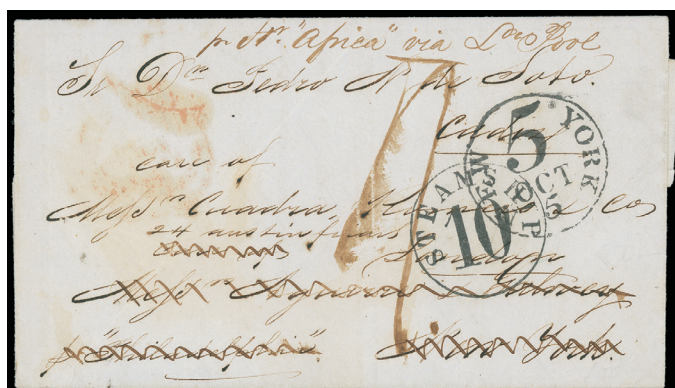 pr Str "Africa" via L. Pool
Sr Dn Pedro N. de Soto.
Cadiz
care of
Messrs Cuadra, & Co
24 austin friars
London
Messrs &
p "Philadelphia" New York.
NEW YORK
5
OCT
STEAMSHIP
10